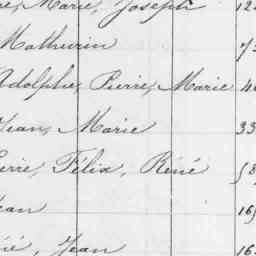 Marie, Joseph 12
Mathurin 73
Adolphe, Pierre, Marie 4
Jean, Marie 33
Pierre, Félix, Réné 58
Jean 16
Réné, Jean 16